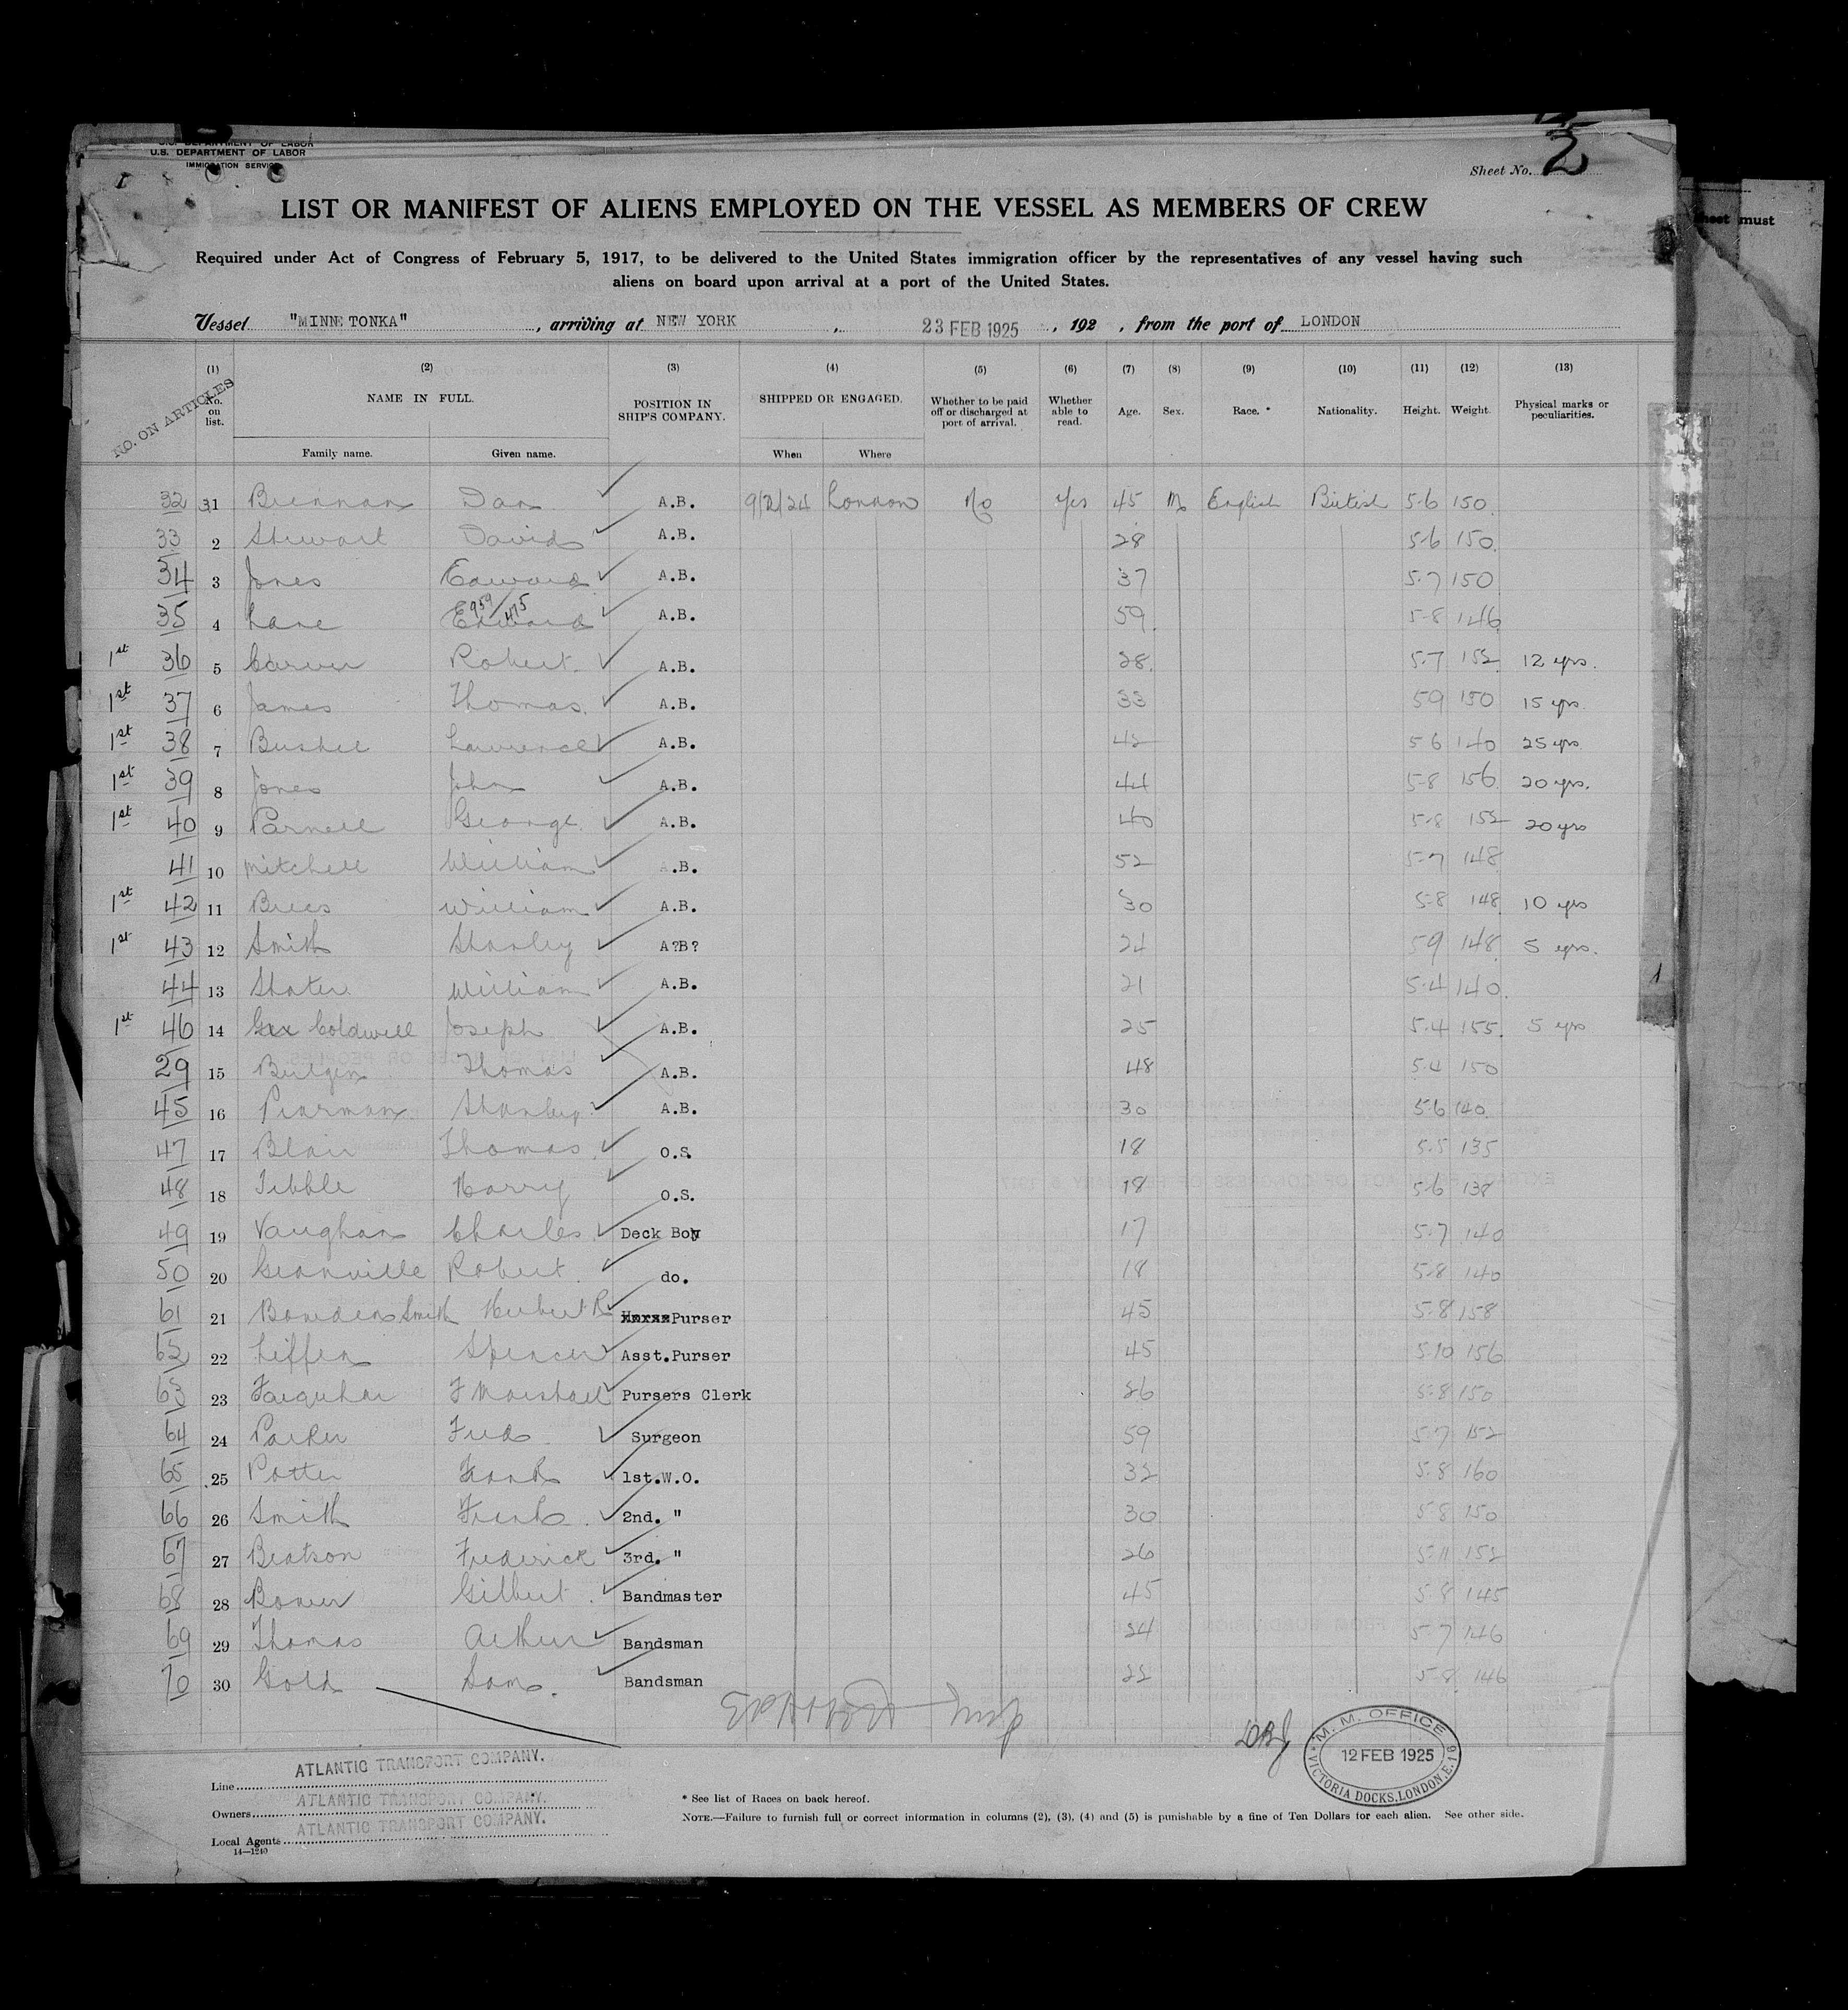 U.S. DEPARTMENT OF LABOR
U.S. DEPARTMENT OF LABOR
IMMIGRATION SERVICE
Sheet No. 2
LIST OR MANIFEST OF ALIENS EMPLOYED ON THE VESSEL AS MEMBERS OF CREW
Required under Act of Congress of February 5, 1917, to be delivered to the United States immigration officer by the representatives of any vessel having such
aliens on board upon arrival at a port of the United States.
Vessel "MINNETONKA", arriving at NEW YORK, 23 FEB 1925, 192 , from the port of LONDON
sheet must
NO. ON ARTICLES
(1) (2) (3) (4) (5) (6) (7) (8) (9) (10) (11) (12) (13)
No. on list. NAME IN FULL. POSITION IN SHIP'S COMPANY. SHIPPED OR ENGAGED. Whether to be paid off or discharged at port of arrival. Whether able to read. Age. Sex. Race. * Nationality. Height. Weight. Physical marks or peculiarities.
Family name. Given name. When Where
32 31 Brennan Dan A.B. London No Yes 45 M English British 5-6 150
33 2 Stewart David A.B. 28 5-6 150
34 3 Jones Edward A.B. 37 5-7 150
35 4 Lane Edward A.B. 59 5-8 146
1st 36 5 Carver Robert A.B. 28 5-7 152 12 yrs.
1st 37 6 James Thomas A.B. 33 5 9 150 15 yrs.
1st 38 7 Lawrence A.B. 42 5 6 140 25 yrs.
1st 39 8 Jones John A.B. 44 5-8 156 20 yrs.
1st 40 9 Parnell George A.B. 40 5-8 152 20 yrs
41 10 Mitchell William A.B. 52 5-7 148
1st 42 11 William A.B. 30 5-8 148 10 yrs
1st 43 12 Smith Stanley A?B? 24 5 9 148 5 yrs.
44 13 William A.B. 21 5-4 140
1st 46 14 Coldwell Joseph A.B. 25 5-4 155 5 yrs
29 15 Thomas A.B. 48 5-4 150
45 16 Pearman Stanley A.B. 30 5-6 140
47 17 Blair Thomas O.S. 18 5-5 135
48 18 Tibble Harry O.S. 18 5-6 138
49 19 Vaughan Charles Deck Boy 17 5-7 140
50 20 Granville Robert do. 18 5-8 140
61 21 Bowden Smith Herbert R Purser 45 5-8 158
62 22 Liffen Spencer Asst.Purser 45 5-10 156
63 23 Farquhar F Marshall Pursers Clerk 26 5-8 150
64 24 Parker Fred Surgeon 59 5-7 152
65 25 Potter Frank 1st.W.O. 32 5-8 160
66 26 Smith Frank 2nd. " 30 5-8 150
67 27 Beatson Frederick 3rd. " 26 5-11 152
68 28 Bower Gilbert Bandmaster 45 5-8 145
69 29 Thomas Arthur Bandsman 24 5-7 146
70 30 Gold Sam Bandsman 22 5-8 146
M. M. OFFICE
12 FEB 1925
VICTORIA DOCKS, LONDON, E.16
Line ATLANTIC TRANSPORT COMPANY.
Owners ATLANTIC TRANSPORT COMPANY.
Local Agents ATLANTIC TRANSPORT COMPANY.
14—1240
* See list of Races on back hereof.
NOTE.—Failure to furnish full or correct information in columns (2), (3), (4) and (5) is punishable by a fine of Ten Dollars for each alien. See other side.